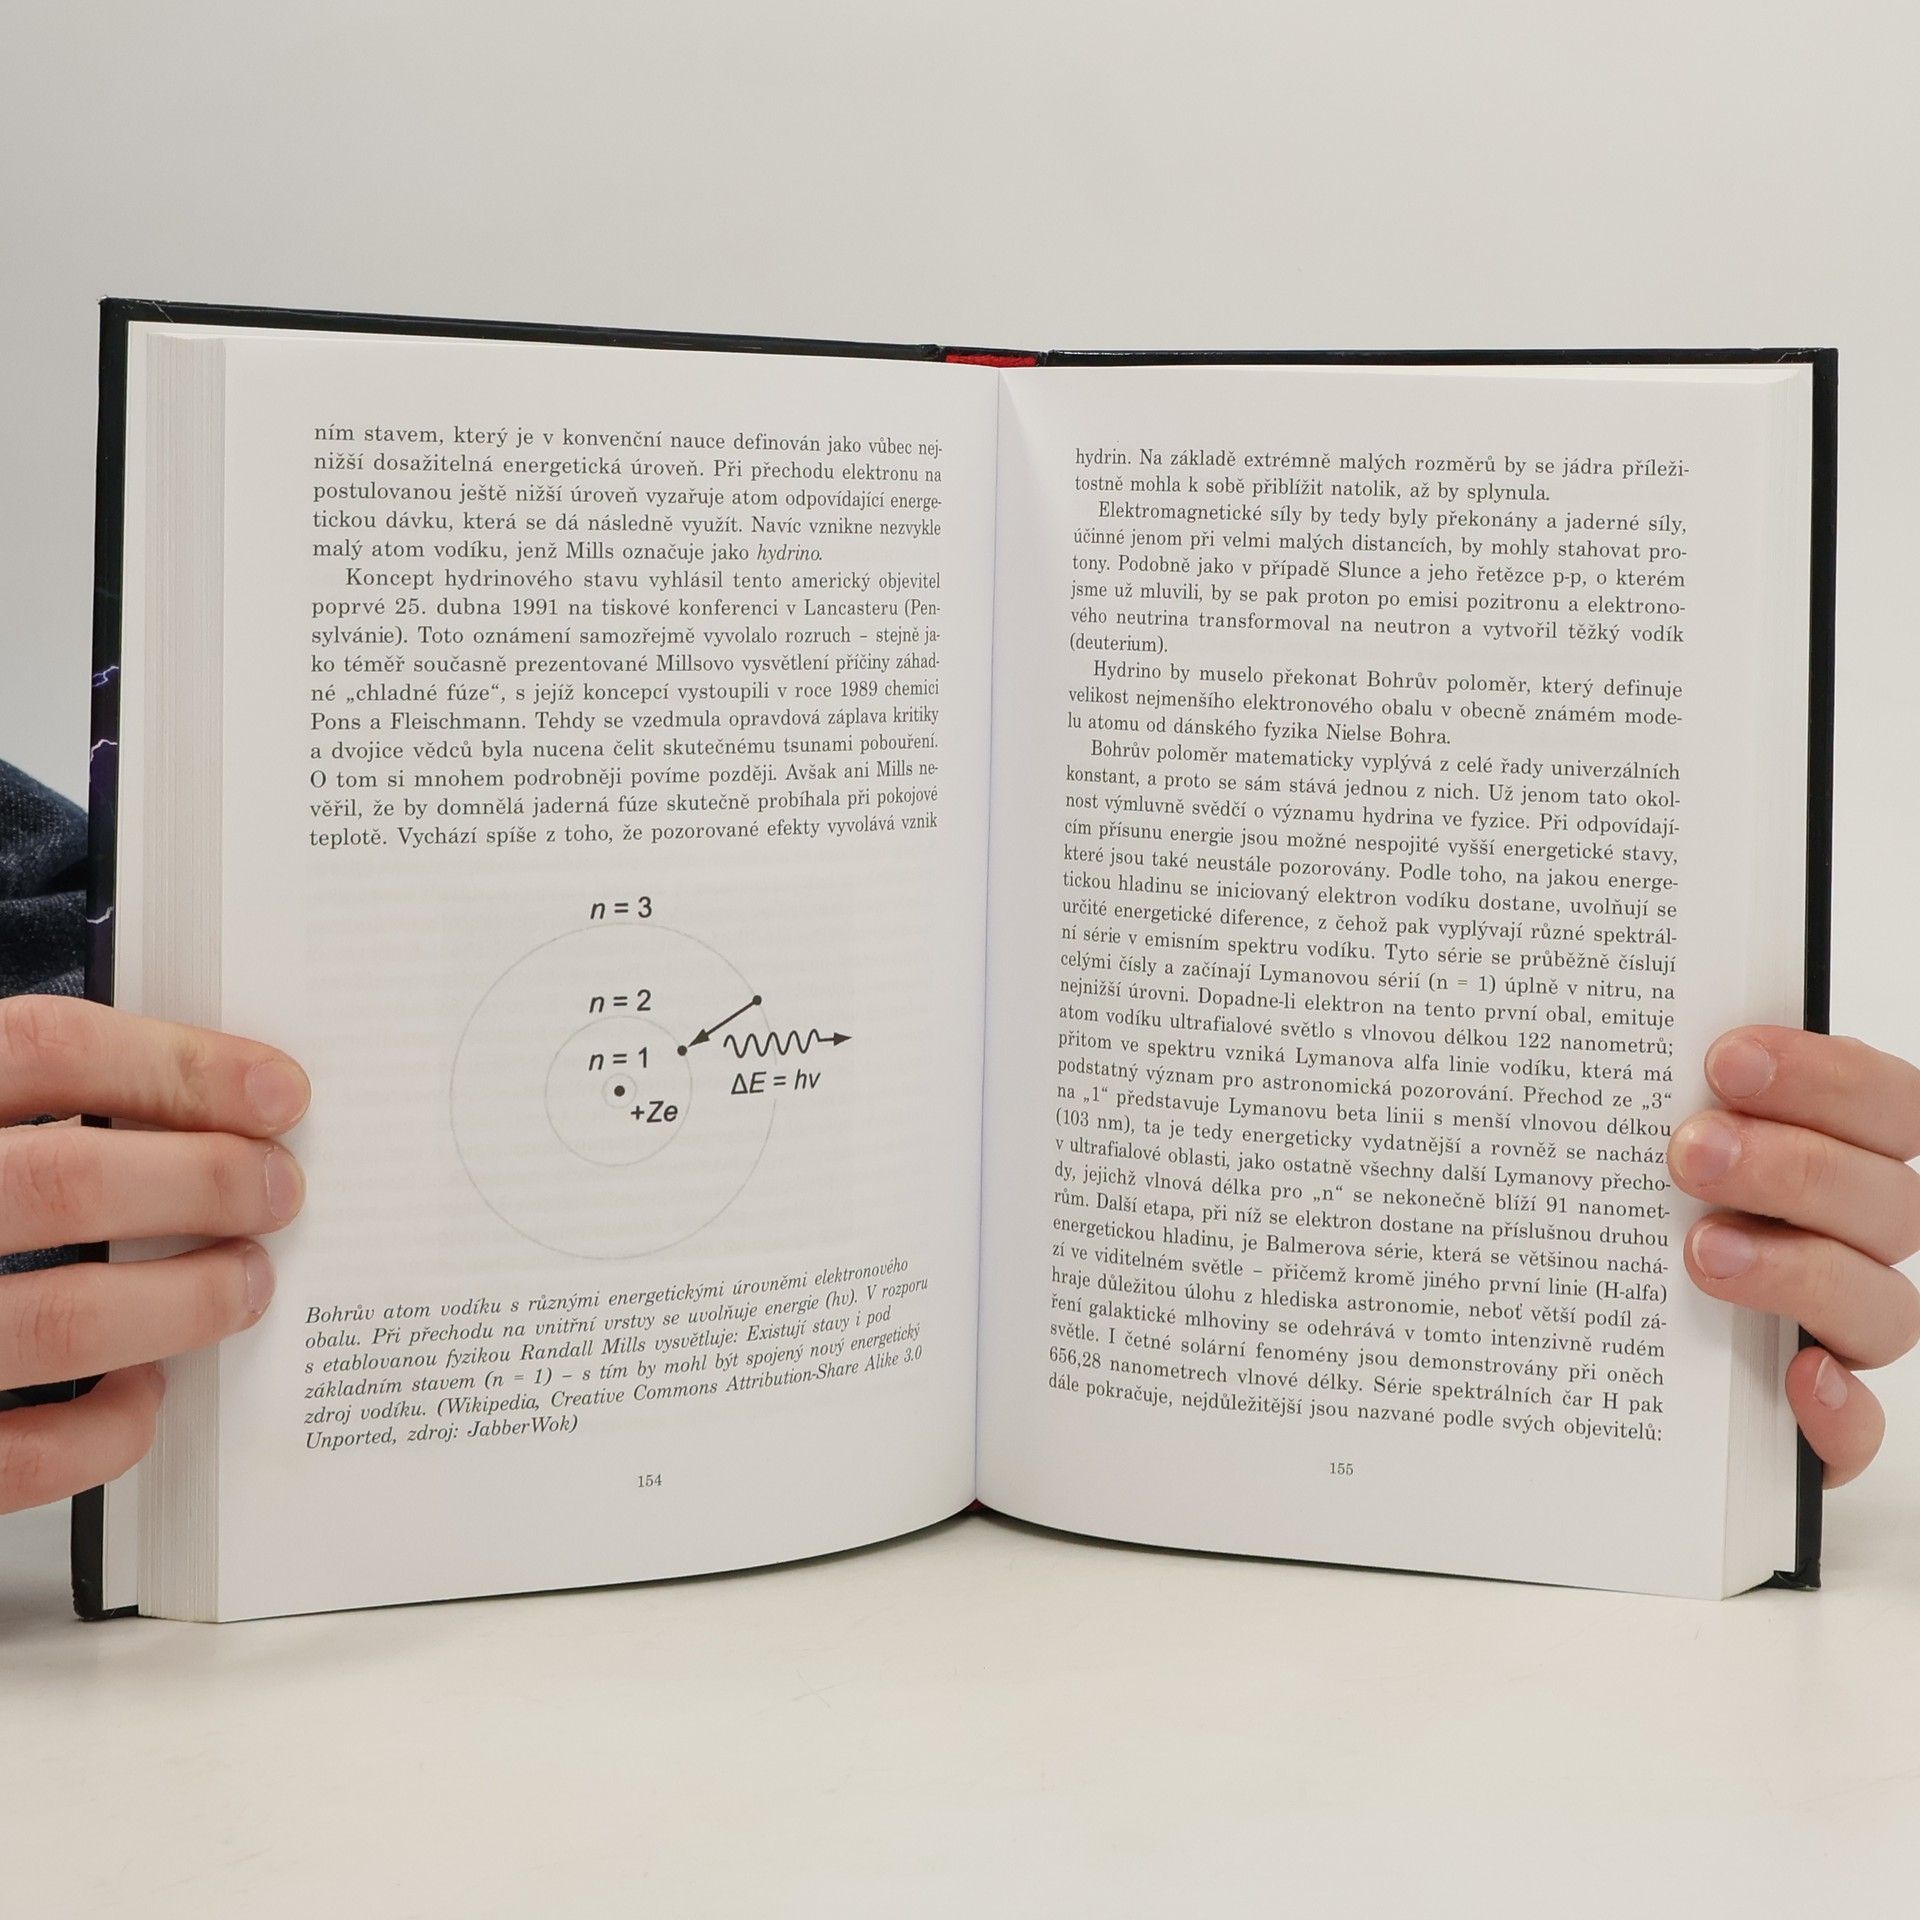 ním stavem, který je v konvenční nauce definován jako vůbec nej-
nižší dosažitelná energetická úroveň. Při přechodu elektronu na
postulovanou ještě nižší úroveň vyzařuje atom odpovídající energe-
tickou dávku, která se dá následně využít. Navíc vznikne nezvykle
malý atom vodíku, jenž Mills označuje jako hydrino.
Koncept hydrinového stavu vyhlásil tento americký objevitel
poprvé 25. dubna 1991 na tiskové konferenci v Lancasteru (Pen-
sylvánie). Toto oznámení samozřejmě vyvolalo rozruch – stejně ja-
ko téměř současně prezentované Millsovo vysvětlení příčiny záhad-
né „chladné fúze“, s jejíž koncepcí vystoupili v roce 1989 chemici
Pons a Fleischmann. Tehdy se vzedmula opravdová záplava kritiky
a dvojice vědců byla nucena čelit skutečnému tsunami pobouření.
O tom si mnohem podrobněji povíme později. Avšak ani Mills ne-
věřil, že by domnělá jaderná fúze skutečně probíhala při pokojové
teplotě. Vychází spíše z toho, že pozorované efekty vyvolává vznik
n = 3
n = 2
n = 1
+Ze
ΔE = hν
Bohrův atom vodíku s různými energetickými úrovněmi elektronového
obalu. Při přechodu na vnitřní vrstvy se uvolňuje energie (hν). V rozporu
s etablovanou fyzikou Randall Mills vysvětluje: Existují stavy i pod
základním stavem (n = 1) – s tím by mohl být spojený nový energetický
zdroj vodíku. (Wikipedia, Creative Commons Attribution-Share Alike 3.0
Unported, zdroj: JabberWok)
154
hydrin. Na základě extrémně malých rozměrů by se jádra příleži-
tostně mohla k sobě přiblížit natolik, až by splynula.
Elektromagnetické síly by tedy byly překonány a jaderné síly,
účinné jenom při velmi malých distancích, by mohly stahovat pro-
tony. Podobně jako v případě Slunce a jeho řetězce p-p, o kterém
jsme už mluvili, by se pak proton po emisi pozitronu a elektrono-
vého neutrina transformoval na neutron a vytvořil těžký vodík
(deuterium).
Hydrino by muselo překonat Bohrův poloměr, který definuje
velikost nejmenšího elektronového obalu v obecně známém mode-
lu atomu od dánského fyzika Nielse Bohra.
Bohrův poloměr matematicky vyplývá z celé řady univerzálních
konstant, a proto se sám stává jednou z nich. Už jenom tato okol-
nost výmluvně svědčí o významu hydrina ve fyzice. Při odpovídají-
cím přísunu energie jsou možné nespojité vyšší energetické stavy,
které jsou také neustále pozorovány. Podle toho, na jakou energe-
tickou hladinu se iniciovaný elektron vodíku dostane, uvolňují se
určité energetické diference, z čehož pak vyplývají různé spektrál-
ní série v emisním spektru vodíku. Tyto série se průběžně číslují
celými čísly a začínají Lymanovou sérií (n = 1) úplně v nitru, na
nejnižší úrovni. Dopadne-li elektron na tento první obal, emituje
atom vodíku ultrafialové světlo s vlnovou délkou 122 nanometrů;
přitom ve spektru vzniká Lymanova alfa linie vodíku, která má
podstatný význam pro astronomická pozorování. Přechod ze „3“
na „1“ představuje Lymanovu beta linii s menší vlnovou délkou
(103 nm), ta je tedy energeticky vydatnější a rovněž se nachází
v ultrafialové oblasti, jako ostatně všechny další Lymanovy přecho-
dy, jejichž vlnová délka pro „n“ se nekonečně blíží 91 nanomet-
rům. Další etapa, při níž se elektron dostane na příslušnou druhou
energetickou hladinu, je Balmerova série, která se většinou nachá-
zí ve viditelném světle – přičemž kromě jiného první linie (H-alfa)
hraje důležitou úlohu z hlediska astronomie, neboť větší podíl zá-
ření galaktické mlhoviny se odehrává v tomto intenzivně rudém
světle. I četné solární fenomény jsou demonstrovány při oněch
656,28 nanometrech vlnové délky. Série spektrálních čar H pak
dále pokračuje, nejdůležitější jsou nazvané podle svých objevitelů:
155